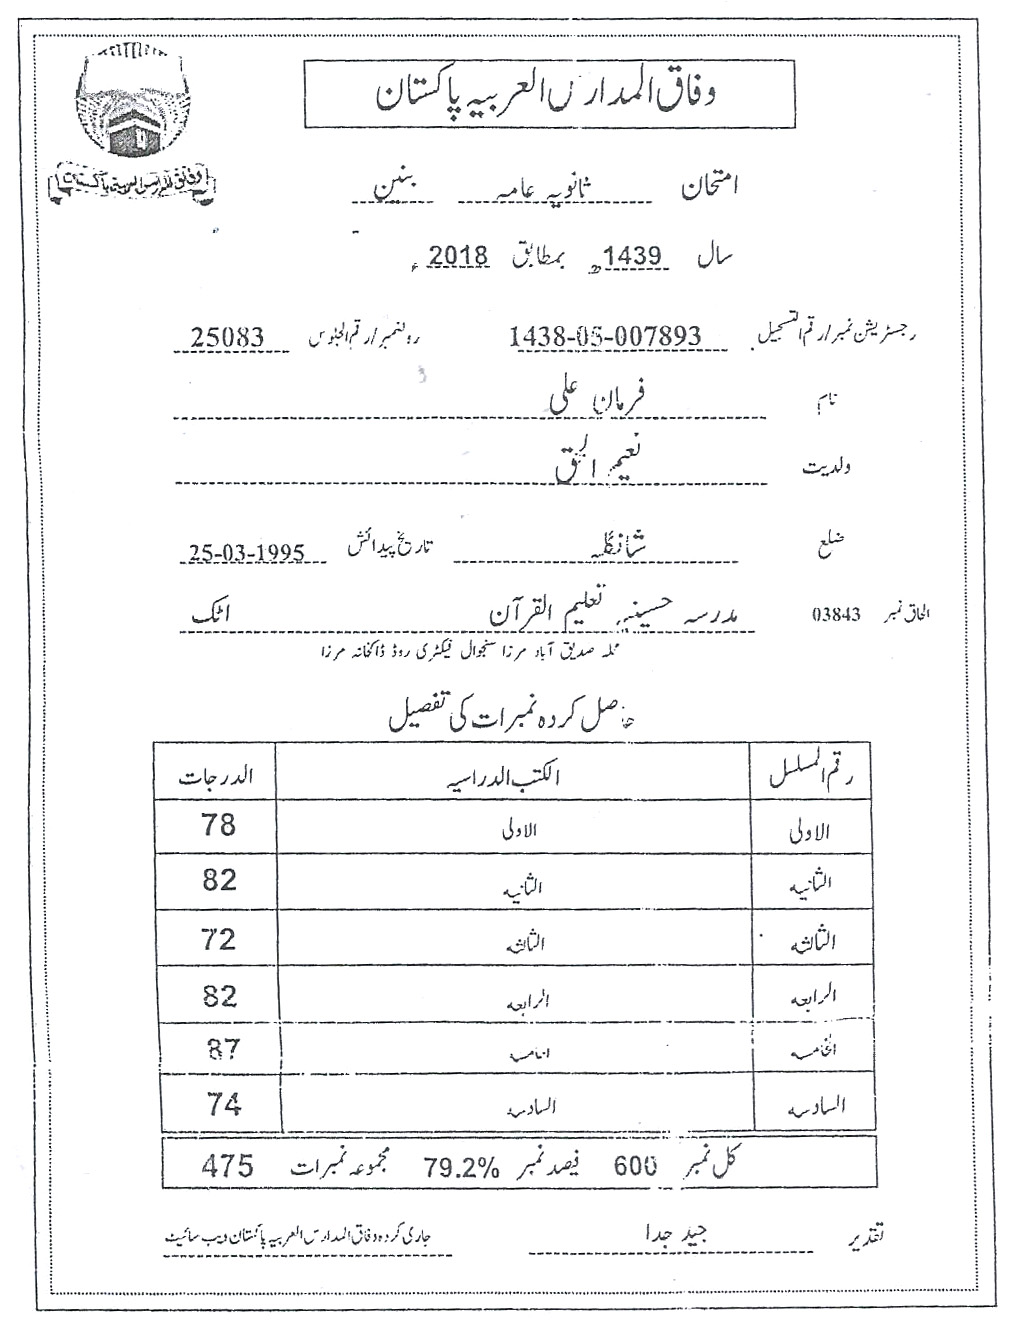 وفاق المدارس العربیہ پاکستان
وفاق المدارس العربیہ پاکستان
امتحان ثانویہ عامہ بنین
سال 1439ھ بمطابق 2018ء
رجسٹریشن نمبر/رقم التسجیل 1438-05-007893 رولنمبر/رقم الجلوس 25083
نام فرمان علی
ولدیت نعیم الحق
ضلع شانگلہ تاریخ پیدائش 25-03-1995
الحاق نمبر 03843 مدرسہ حسینیہ تعلیم القرآن اٹک
محلہ صدیق آباد مرزا سنجوال فیکٹری روڈ ڈاکخانہ مرزا
حاصل کردہ نمبرات کی تفصیل
رقم المسلسل الکتب الدراسیہ الدرجات
الاولی الاولی 78
الثانیہ الثانیہ 82
الثالثہ الثالثہ 72
الرابعہ الرابعہ 82
الخامسہ الخامسہ 87
السادسہ السادسہ 74
کل نمبر 600 فیصد نمبر 79.2% مجموعہ نمبرات 475
تقدیر جید جدا جاری کردہ وفاق المدارس العربیہ پاکستان ویب سائیٹ